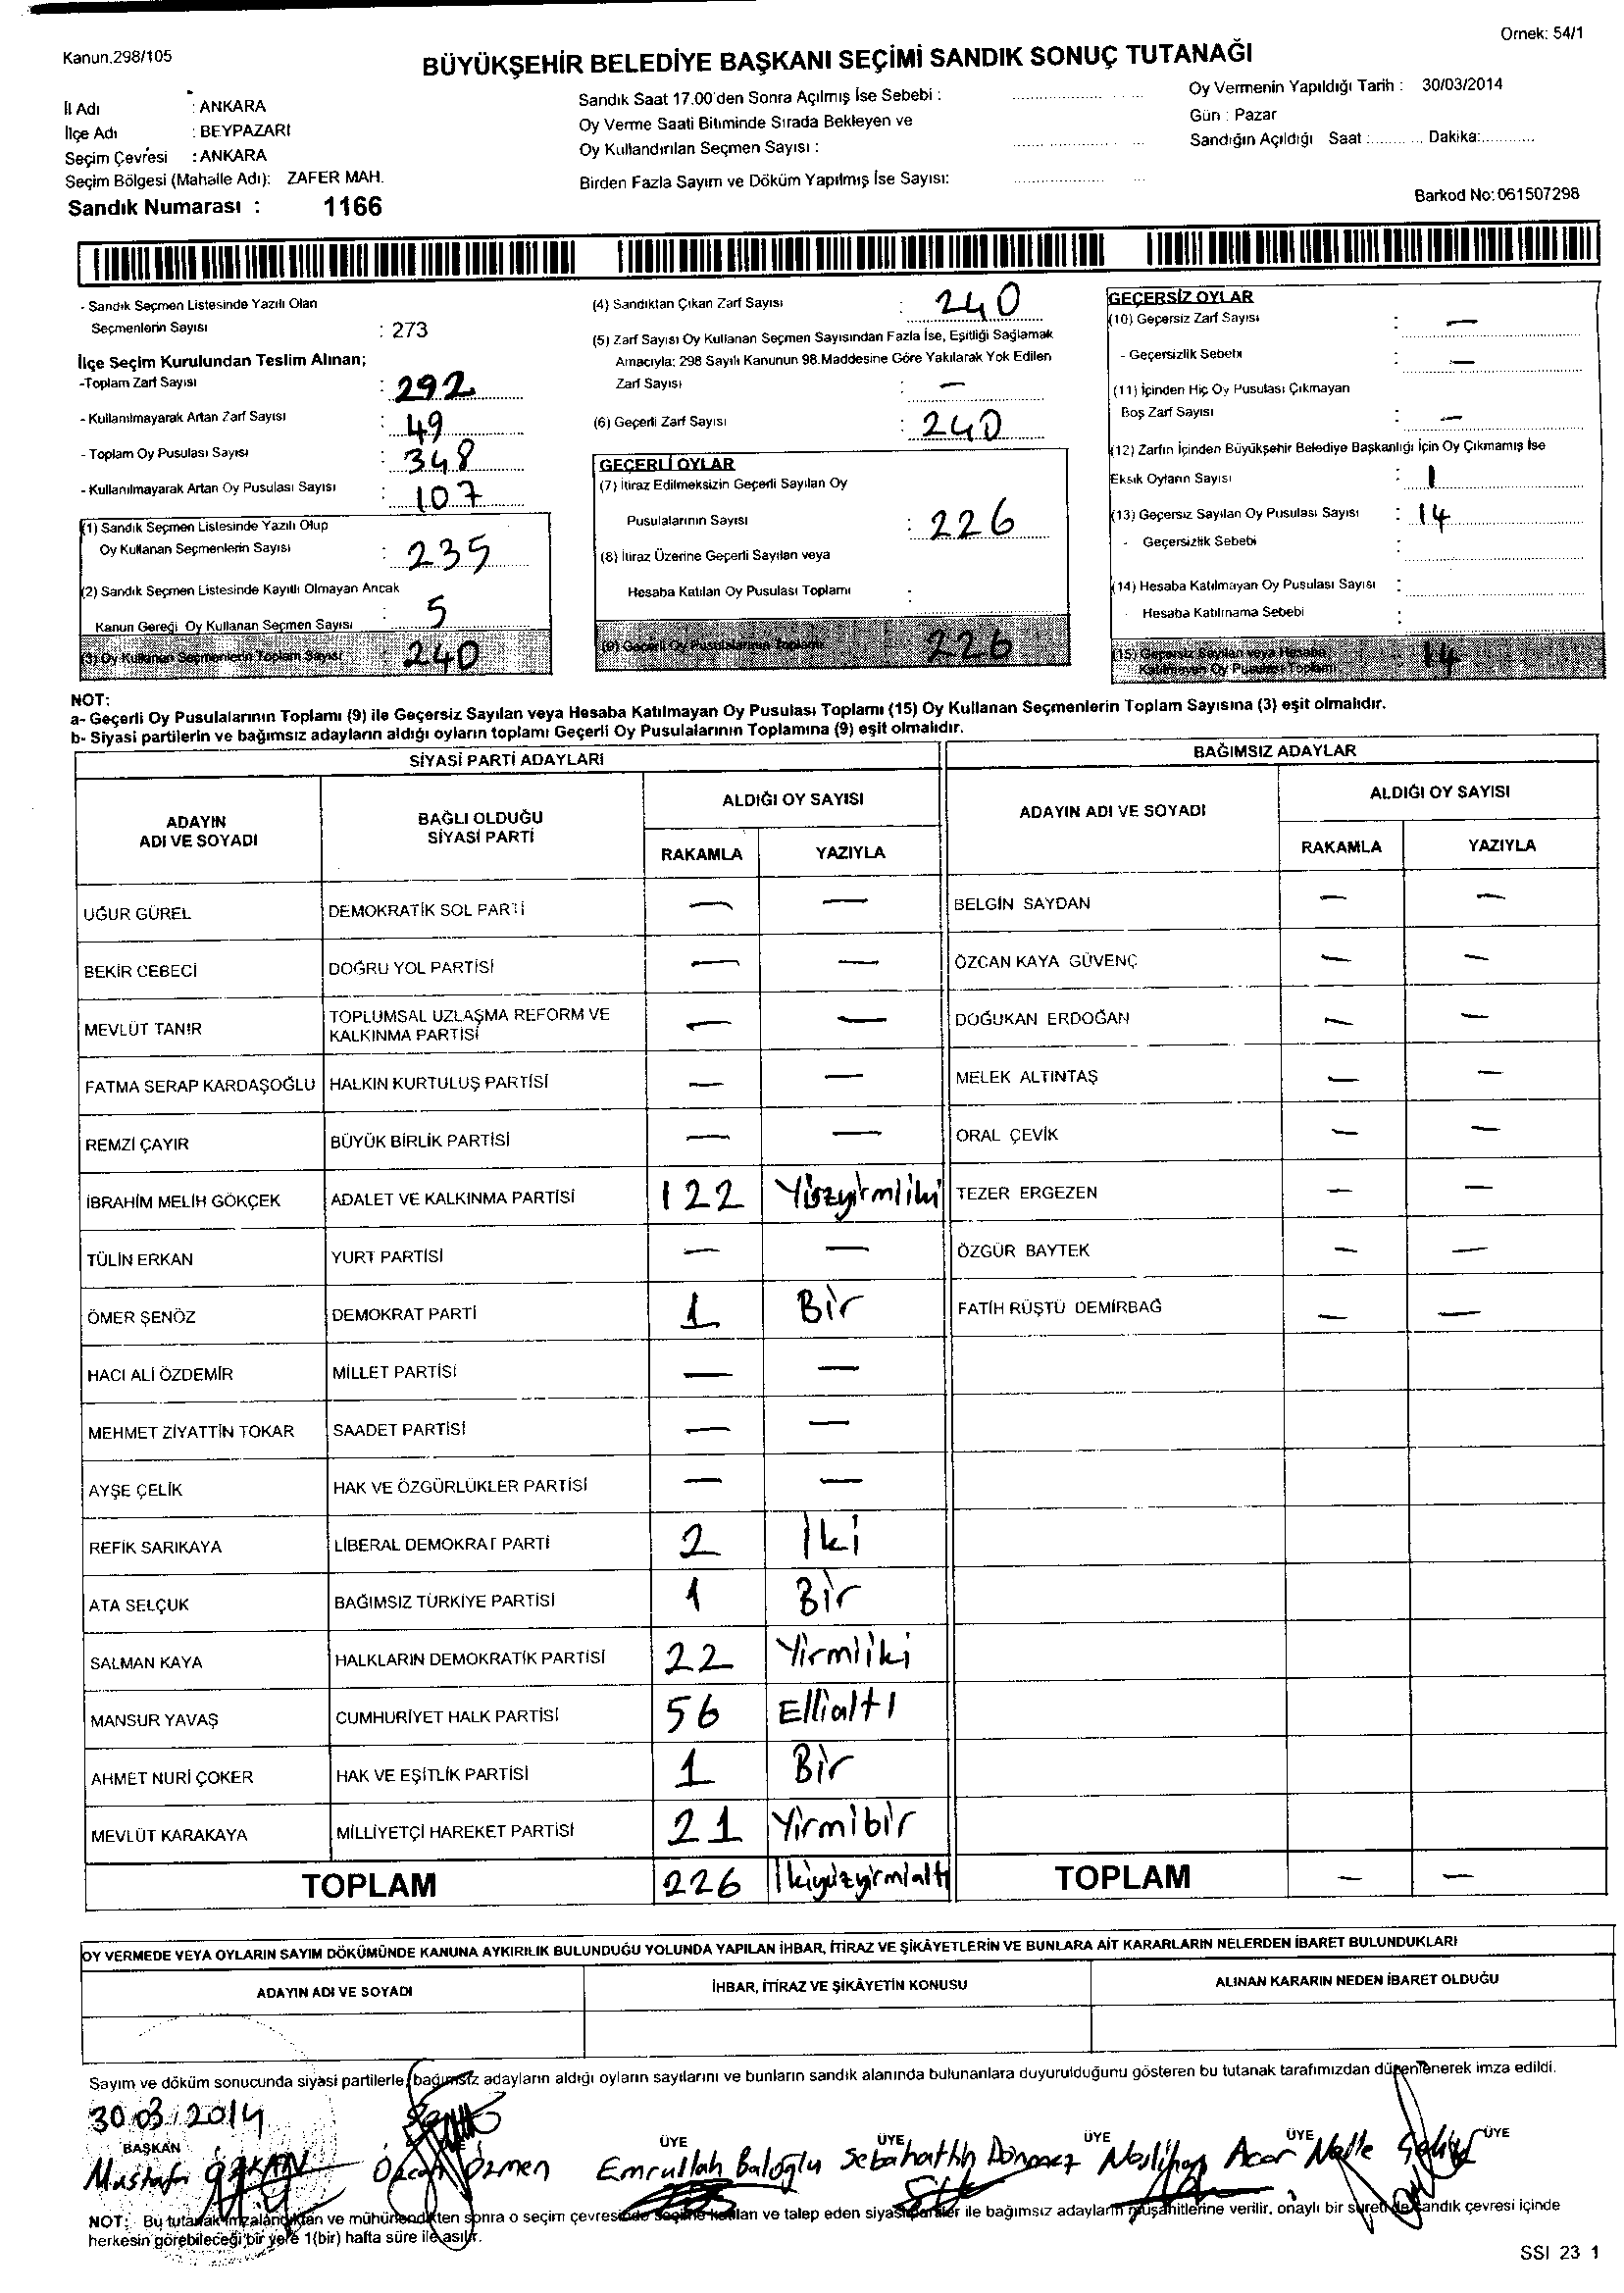 Kanun.298/105
Örnek: 54/1
BÜYÜKŞEHİR BELEDİYE BAŞKANI SEÇİMİ SANDIK SONUÇ TUTANAĞI
İl Adı : ANKARA
İlçe Adı : BEYPAZARI
Seçim Çevresi : ANKARA
Seçim Bölgesi (Mahalle Adı): ZAFER MAH.
Sandık Numarası : 1166
Sandık Saat 17.00'den Sonra Açılmış İse Sebebi :
Oy Verme Saati Bitiminde Sırada Bekleyen ve
Oy Kullandırılan Seçmen Sayısı :
Birden Fazla Sayım ve Döküm Yapılmış İse Sayısı:
Oy Vermenin Yapıldığı Tarih : 30/03/2014
Gün : Pazar
Sandığın Açıldığı Saat :.......... Dakika:...........
Barkod No: 061507298
- Sandık Seçmen Listesinde Yazılı Olan
Seçmenlerin Sayısı : 273
İlçe Seçim Kurulundan Teslim Alınan;
-Toplam Zarf Sayısı : 292
- Kullanılmayarak Artan Zarf Sayısı : 49
- Toplam Oy Pusulası Sayısı : 348
- Kullanılmayarak Artan Oy Pusulası Sayısı : 107
(1) Sandık Seçmen Listesinde Yazılı Olup
Oy Kullanan Seçmenlerin Sayısı : 235
(2) Sandık Seçmen Listesinde Kayıtlı Olmayan Ancak
Kanun Gereği Oy Kullanan Seçmen Sayısı : 5
(3) Oy Kullanan Seçmenlerin Toplam Sayısı : 240
(4) Sandıktan Çıkan Zarf Sayısı : 240
(5) Zarf Sayısı Oy Kullanan Seçmen Sayısından Fazla İse, Eşitliği Sağlamak
Amacıyla; 298 Sayılı Kanunun 98.Maddesine Göre Yakılarak Yok Edilen
Zarf Sayısı : —
(6) Geçerli Zarf Sayısı : 240
GEÇERLİ OYLAR
(7) İtiraz Edilmeksizin Geçerli Sayılan Oy
Pusulalarının Sayısı : 226
(8) İtiraz Üzerine Geçerli Sayılan veya
Hesaba Katılan Oy Pusulası Toplamı :
(9) Geçerli Oy Pusulalarının Toplamı 226
GEÇERSİZ OYLAR
(10) Geçersiz Zarf Sayısı : —
- Geçersizlik Sebebi : —
(11) İçinden Hiç Oy Pusulası Çıkmayan
Boş Zarf Sayısı : —
(12) Zarfın İçinden Büyükşehir Belediye Başkanlığı İçin Oy Çıkmamış İse
Eksik Oyların Sayısı : 1
(13) Geçersiz Sayılan Oy Pusulası Sayısı : 14
- Geçersizlik Sebebi :
(14) Hesaba Katılmayan Oy Pusulası Sayısı :
- Hesaba Katılmama Sebebi :
(15) Geçersiz Sayılan veya Hesaba
Katılmayan Oy Pusulası Toplamı 14
NOT:
a- Geçerli Oy Pusulalarının Toplamı (9) ile Geçersiz Sayılan veya Hesaba Katılmayan Oy Pusulası Toplamı (15) Oy Kullanan Seçmenlerin Toplam Sayısına (3) eşit olmalıdır.
b- Siyasi partilerin ve bağımsız adayların aldığı oyların toplamı Geçerli Oy Pusulalarının Toplamına (9) eşit olmalıdır.
SİYASİ PARTİ ADAYLARI
BAĞIMSIZ ADAYLAR
ADAYIN ADI VE SOYADI
BAĞLI OLDUĞU SİYASİ PARTİ
ALDIĞI OY SAYISI
RAKAMLA YAZIYLA
ADAYIN ADI VE SOYADI
ALDIĞI OY SAYISI
RAKAMLA YAZIYLA
UĞUR GÜREL DEMOKRATİK SOL PARTİ — — BELGİN SAYDAN — —
BEKİR CEBECİ DOĞRU YOL PARTİSİ — — ÖZCAN KAYA GÜVENÇ — —
MEVLÜT TANIR TOPLUMSAL UZLAŞMA REFORM VE KALKINMA PARTİSİ — — DOĞUKAN ERDOĞAN — —
FATMA SERAP KARDAŞOĞLU HALKIN KURTULUŞ PARTİSİ — — MELEK ALTINTAŞ — —
REMZİ ÇAYIR BÜYÜK BİRLİK PARTİSİ — — ORAL ÇEVİK — —
İBRAHİM MELİH GÖKÇEK ADALET VE KALKINMA PARTİSİ 122 Yüzyirmiiki TEZER ERGEZEN — —
TÜLİN ERKAN YURT PARTİSİ — — ÖZGÜR BAYTEK — —
ÖMER ŞENÖZ DEMOKRAT PARTİ 1 Bir FATİH RÜŞTÜ DEMİRBAĞ — —
HACI ALİ ÖZDEMİR MİLLET PARTİSİ — —
MEHMET ZİYATTİN TOKAR SAADET PARTİSİ — —
AYŞE ÇELİK HAK VE ÖZGÜRLÜKLER PARTİSİ — —
REFİK SARIKAYA LİBERAL DEMOKRAT PARTİ 2 İki
ATA SELÇUK BAĞIMSIZ TÜRKİYE PARTİSİ 1 Bir
SALMAN KAYA HALKLARIN DEMOKRATİK PARTİSİ 22 Yirmiiki
MANSUR YAVAŞ CUMHURİYET HALK PARTİSİ 56 Ellialtı
AHMET NURİ ÇOKER HAK VE EŞİTLİK PARTİSİ 1 Bir
MEVLÜT KARAKAYA MİLLİYETÇİ HAREKET PARTİSİ 21 Yirmibir
TOPLAM 226 İkiyüzyirmialtı TOPLAM — —
OY VERMEDE VEYA OYLARIN SAYIM DÖKÜMÜNDE KANUNA AYKIRILIK BULUNDUĞU YOLUNDA YAPILAN İHBAR, İTİRAZ VE ŞİKÂYETLERİN VE BUNLARA AİT KARARLARIN NELERDEN İBARET BULUNDUKLARI
ADAYIN ADI VE SOYADI İHBAR, İTİRAZ VE ŞİKÂYETİN KONUSU ALINAN KARARIN NEDEN İBARET OLDUĞU
Sayım ve döküm sonucunda siyasi partilerle bağımsız adayların aldığı oyların sayılarını ve bunların sandık alanında bulunanlara duyurulduğunu gösteren bu tutanak tarafımızdan düzenlenerek imza edildi.
30.03.2014
BAŞKAN ÜYE ÜYE ÜYE ÜYE ÜYE
Mustafa ÖZKAN Özcan Özmen Emrullah Baloğlu Sebahattin Dönmez Neslihan Acar Naile
NOT: Bu tutanak imzalandıktan ve mühürlendikten sonra o seçim çevresinde seçime katılan ve talep eden siyasi partiler ile bağımsız adayların müşahitlerine verilir, onaylı bir sureti de sandık çevresi içinde
herkesin görebileceği bir yere 1(bir) hafta süre ile asılır.
SSI 23 1